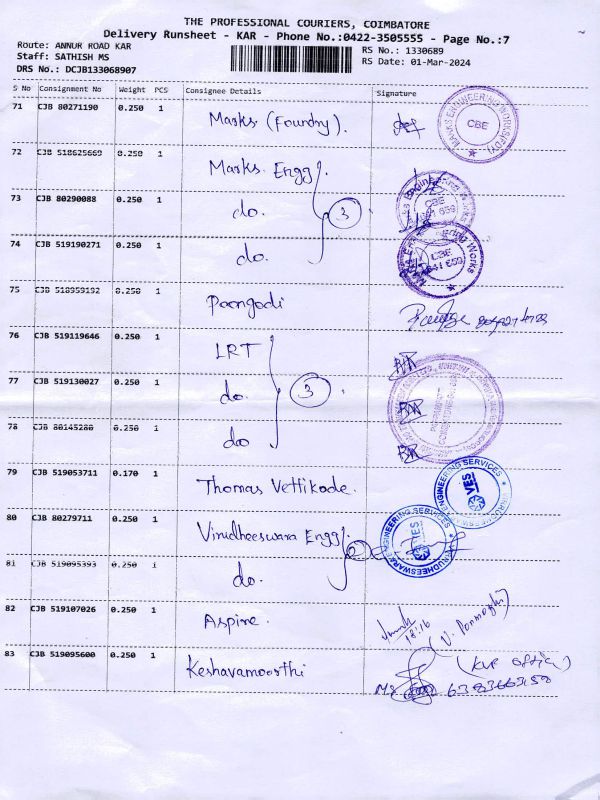 THE PROFESSIONAL COURIERS, COIMBATORE
Delivery Runsheet - KAR - Phone No.:0422-3505555 - Page No.:7
Route: ANNUR ROAD KAR
RS No.: 1330689
Staff: SATHISH MS
RS Date: 01-Mar-2024
DRS No.: DCJB133068907
S No Consignment No Weight PCS Consignee Details Signature
71 CJB 80271190 0.250 1 Marks (Foundry).
CBE
72 CJB 518625669 0.250 1 Marks Engg
73 CJB 80290088 0.250 1 do. 3
CBE
74 CJB 519190271 0.250 1 do.
CBE
75 CJB 518959192 0.250 1 Poongodi
76 CJB 519119646 0.250 1 LRT
77 CJB 519130027 0.250 1 do. 3
78 CJB 80145280 0.250 1 do
79 CJB 519053711 0.170 1 Thomas Vettikade.
ENGINEERING SERVICES
VES
80 CJB 80279711 0.250 1 Virudheeswara Engg 2
ENGINEERING SERVICES
VES
81 CJB 519095393 0.250 1 do.
82 CJB 519107026 0.250 1 Aspire.
83 CJB 519095600 0.250 1 Keshavamoorthi
(KVP Office)